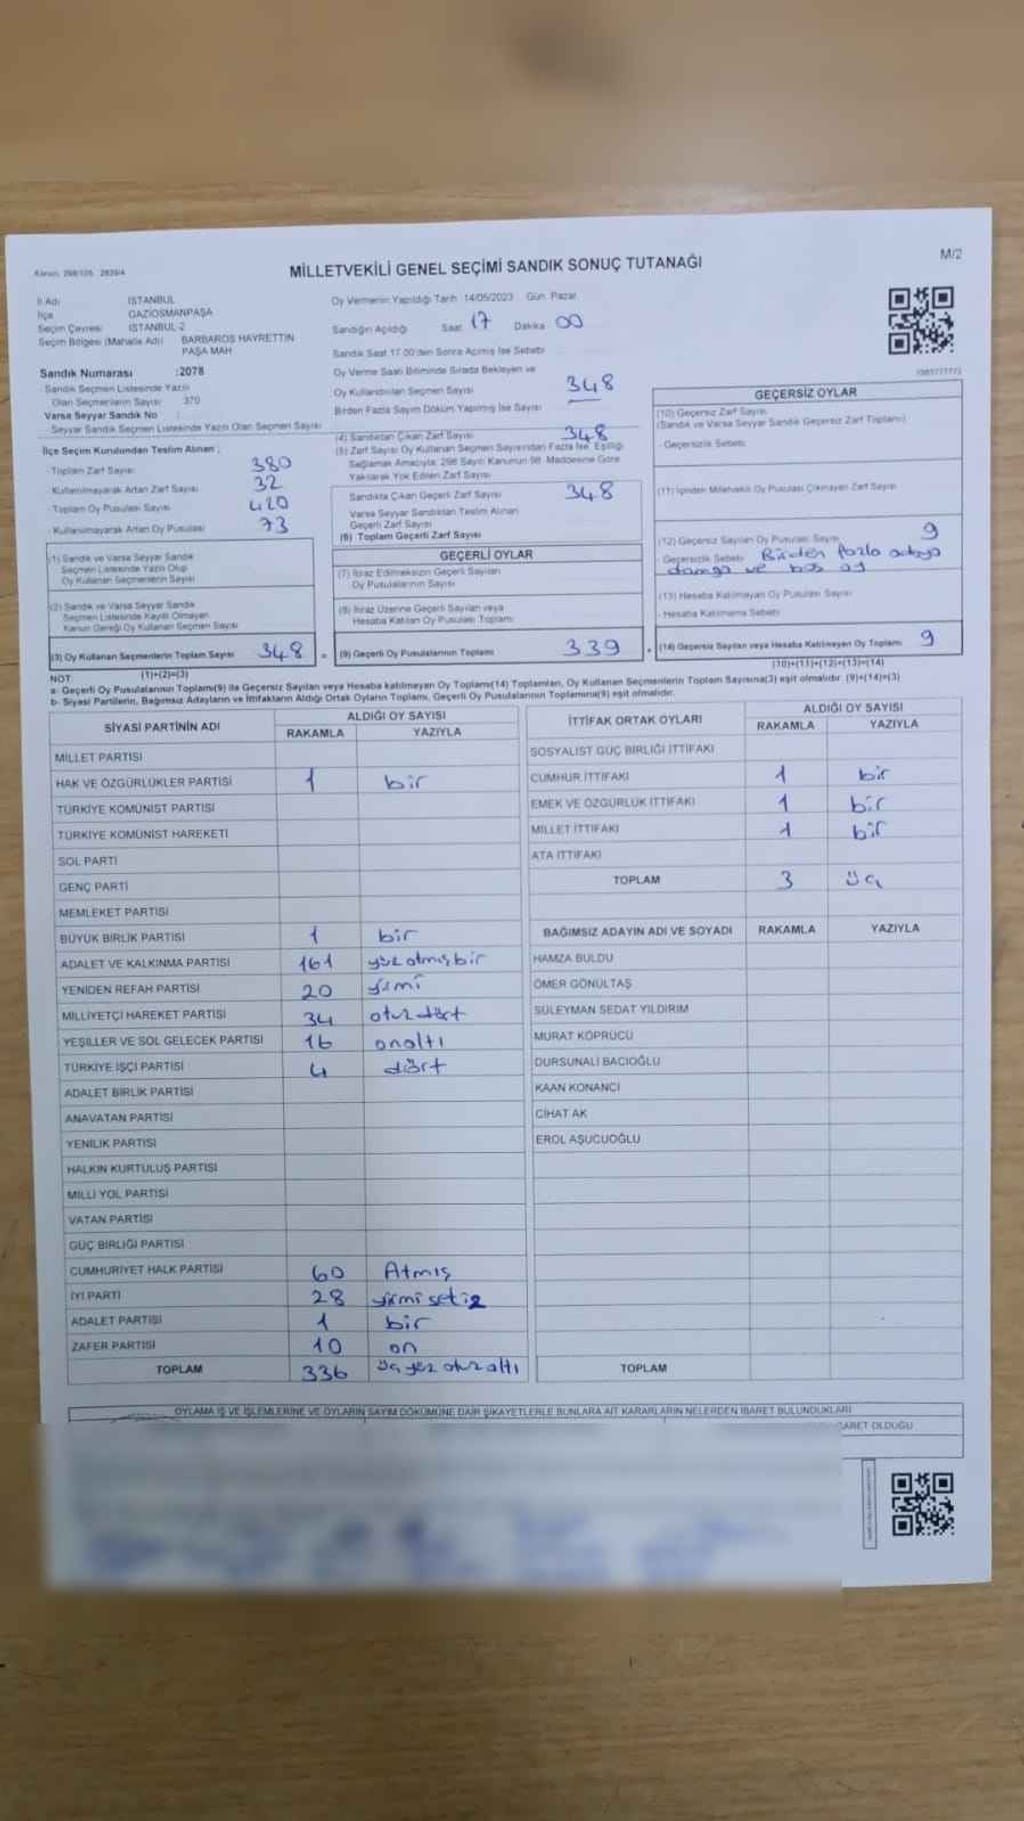 M/2
Kanun: 298/105 2839/4
MİLLETVEKİLİ GENEL SEÇİMİ SANDIK SONUÇ TUTANAĞI
İl Adı İSTANBUL
İlçe GAZİOSMANPAŞA
Seçim Çevresi İSTANBUL-2
Seçim Bölgesi (Mahalle Adı) BARBAROS HAYRETTİN
PAŞA MAH
Sandık Numarası :2078
Sandık Seçmen Listesinde Yazılı
Olan Seçmenlerin Sayısı 370
Varsa Seyyar Sandık No :
Seyyar Sandık Seçmen Listesinde Yazılı Olan Seçmen Sayısı
İlçe Seçim Kurulundan Teslim Alınan ;
Toplam Zarf Sayısı 380
Kullanılmayarak Artan Zarf Sayısı 32
Toplam Oy Pusulası Sayısı 420
Kullanılmayarak Artan Oy Pusulası 73
(1) Sandık ve Varsa Seyyar Sandık
Seçmen Listesinde Yazılı Olup
Oy Kullanan Seçmenlerin Sayısı
(2) Sandık ve Varsa Seyyar Sandık
Seçmen Listesinde Kayıtlı Olmayan
Kanun Gereği Oy Kullanan Seçmen Sayısı
(3) Oy Kullanan Seçmenlerin Toplam Sayısı 348 =
(1)+(2)=(3)
Oy Vermenin Yapıldığı Tarih 14/05/2023 Gün Pazar
Sandığın Açıldığı Saat 17 Dakika 00
Sandık Saat 17.00'den Sonra Açılmış İse Sebebi
Oy Verme Saati Bitiminde Sırada Bekleyen ve
Oy Kullandırılan Seçmen Sayısı 348
Birden Fazla Sayım Döküm Yapılmış İse Sayısı
(4) Sandıktan Çıkan Zarf Sayısı 348
(5) Zarf Sayısı Oy Kullanan Seçmen Sayısından Fazla İse, Eşitliği
Sağlamak Amacıyla, 298 Sayılı Kanunun 98. Maddesine Göre
Yakılarak Yok Edilen Zarf Sayısı
Sandıkta Çıkan Geçerli Zarf Sayısı 348
Varsa Seyyar Sandıktan Teslim Alınan
Geçerli Zarf Sayısı
(6) Toplam Geçerli Zarf Sayısı
GEÇERLİ OYLAR
(7) İtiraz Edilmeksizin Geçerli Sayılan
Oy Pusulalarının Sayısı
(8) İtiraz Üzerine Geçerli Sayılan veya
Hesaba Katılan Oy Pusulası Toplamı
(9) Geçerli Oy Pusulalarının Toplamı 339 +
GEÇERSİZ OYLAR
(10) Geçersiz Zarf Sayısı
(Sandık ve Varsa Seyyar Sandık Geçersiz Zarf Toplamı)
Geçersizlik Sebebi
(11) İçinden Milletvekili Oy Pusulası Çıkmayan Zarf Sayısı
(12) Geçersiz Sayılan Oy Pusulası Sayısı 9
Geçersizlik Sebebi Birden fazla
damga ve boş oy
(13) Hesaba Katılmayan Oy Pusulası Sayısı
Hesaba Katılmama Sebebi
(14) Geçersiz Sayılan veya Hesaba Katılmayan Oy Toplamı 9
(10)+(11)+(12)+(13)=(14)
NOT
a- Geçerli Oy Pusulalarının Toplamı(9) ile Geçersiz Sayılan veya Hesaba katılmayan Oy Toplamı(14) Toplamları, Oy Kullanan Seçmenlerin Toplam Sayısına(3) eşit olmalıdır. (9)+(14)=(3)
b- Siyasi Partilerin, Bağımsız Adayların ve İttifakların Aldığı Ortak Oyların Toplamı, Geçerli Oy Pusulalarının Toplamına(9) eşit olmalıdır.
SİYASİ PARTİNİN ADI ALDIĞI OY SAYISI
RAKAMLA YAZIYLA
MİLLET PARTİSİ
HAK VE ÖZGÜRLÜKLER PARTİSİ 1 bir
TÜRKİYE KOMÜNİST PARTİSİ
TÜRKİYE KOMÜNİST HAREKETİ
SOL PARTİ
GENÇ PARTİ
MEMLEKET PARTİSİ
BÜYÜK BİRLİK PARTİSİ 1 bir
ADALET VE KALKINMA PARTİSİ 161 yüzatmışbir
YENİDEN REFAH PARTİSİ 20 yirmi
MİLLİYETÇİ HAREKET PARTİSİ 34 otuzdört
YEŞİLLER VE SOL GELECEK PARTİSİ 16 onaltı
TÜRKİYE İŞÇİ PARTİSİ 4 dört
ADALET BİRLİK PARTİSİ
ANAVATAN PARTİSİ
YENİLİK PARTİSİ
HALKIN KURTULUŞ PARTİSİ
MİLLİ YOL PARTİSİ
VATAN PARTİSİ
GÜÇ BİRLİĞİ PARTİSİ
CUMHURİYET HALK PARTİSİ 60 Atmış
İYİ PARTİ 28 yirmisekiz
ADALET PARTİSİ 1 bir
ZAFER PARTİSİ 10 on
TOPLAM 336 üçyüz otuzaltı
İTTİFAK ORTAK OYLARI ALDIĞI OY SAYISI
RAKAMLA YAZIYLA
SOSYALİST GÜÇ BİRLİĞİ İTTİFAKI
CUMHUR İTTİFAKI 1 bir
EMEK VE ÖZGÜRLÜK İTTİFAKI 1 bir
MİLLET İTTİFAKI 1 bir
ATA İTTİFAKI
TOPLAM 3 üç
BAĞIMSIZ ADAYIN ADI VE SOYADI RAKAMLA YAZIYLA
HAMZA BULDU
ÖMER GÖNÜLTAŞ
SÜLEYMAN SEDAT YILDIRIM
MURAT KÖPRÜCÜ
DURSUNALİ BACIOĞLU
KAAN KONANCİ
CİHAT AK
EROL AŞUCUOĞLU
TOPLAM
OYLAMA İŞ VE İŞLEMLERİNE VE OYLARIN SAYIM DÖKÜMÜNE DAİR ŞİKAYETLERLE BUNLARA AİT KARARLARIN NELERDEN İBARET BULUNDUKLARI
OLDUĞU